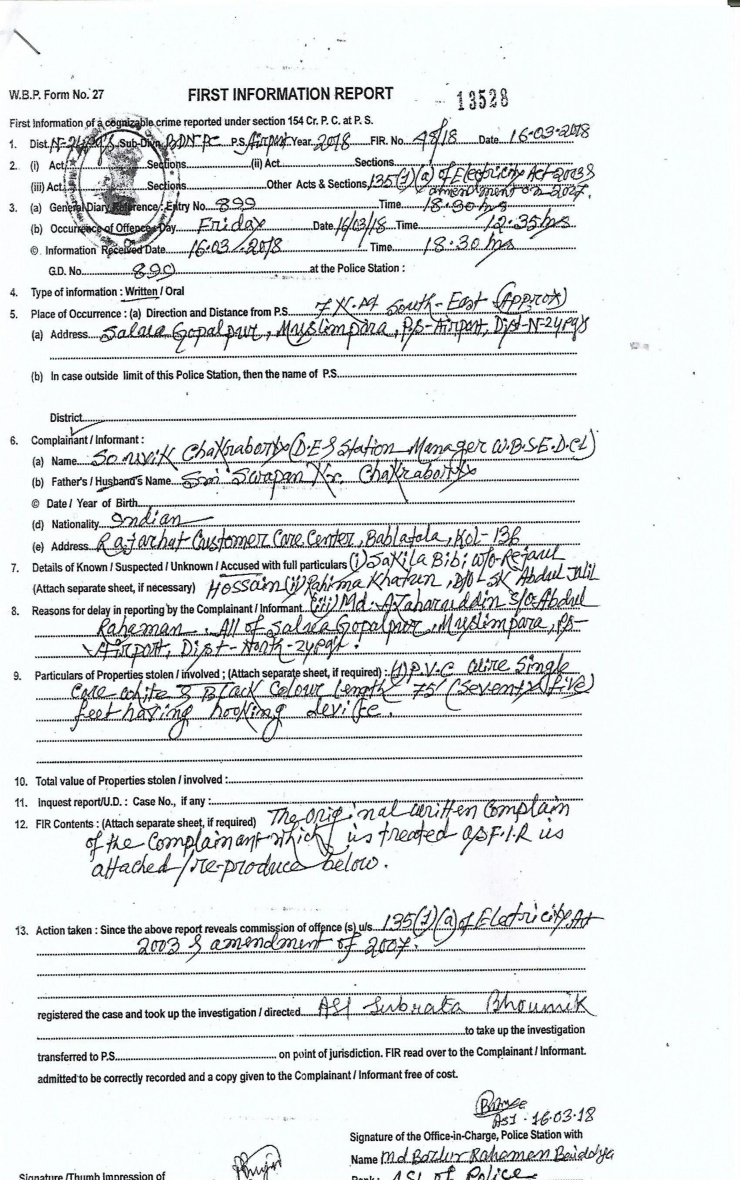 W.B.P. Form No. 27 FIRST INFORMATION REPORT 13528
First Information of a cognizable crime reported under section 154 Cr. P. C. at P. S.
1. Dist. N-24pgs Sub-Divn. BDN P.S. Airport Year 2018 FIR. No. 48/18 Date 16-03-2018
2. (i) Act Sections (ii) Act Sections
(iii) Act Sections Other Acts & Sections 135(1)(a) of Electricity Act 2003 &
amendment on 2007.
3. (a) General Diary Reference : Entry No. 899 Time 18:30 hrs
(b) Occurrence of Offence : Day Friday Date 16/03/18 Time 12:35 hrs
© Information Received Date 16.03.2018 Time 18:30 hrs
G.D. No. 890 at the Police Station :
4. Type of information : Written / Oral
5. Place of Occurrence : (a) Direction and Distance from P.S. 7 K.M South-East (Approx)
(a) Address Salua Gopalpur, Muslimpara, P/S-Airport, Dist-N-24pgs
(b) In case outside limit of this Police Station, then the name of P.S.
District
6. Complainant / Informant :
(a) Name Souvik Chakraborty (D.E & Station Manager W.B.S.E.D.CL)
(b) Father's / Husband's Name Sri Swapan Kr. Chakraborty
© Date / Year of Birth
(d) Nationality Indian
(e) Address Rajarhat Customer Care Center, Bablatala, Kol-136
7. Details of Known / Suspected / Unknown / Accused with full particulars (i) Sakila Bibi W/o-Rejaul
(Attach separate sheet, if necessary) Hossain (ii) Rahima Khatun, D/o L-SK Abdul Jalil
8. Reasons for delay in reporting by the Complainant / Informant (iii) Md. Azaharuddin S/o Abdul
Rahaman. All of Salua Gopalpur, Muslimpara, PS-
Airport, Dist-North-24pgs.
9. Particulars of Properties stolen / involved ; (Attach separate sheet, if required) : (1) P.V.C wire Single
Core white & Black Colour length 75 (Seventy five)
feet having hooking device.
10. Total value of Properties stolen / involved :
11. Inquest report/U.D. : Case No., if any :
12. FIR Contents : (Attach separate sheet, if required) The original written Complain
of the Complainant which is treated as F.I.R is
attached / re-produce below.
13. Action taken : Since the above report reveals commission of offence (s) u/s 135(1)(a) of Eletricity Act
2003 & amendment of 2007.
registered the case and took up the investigation / directed ASI Subrata Bhoumik
to take up the investigation
transferred to P.S. on point of jurisdiction. FIR read over to the Complainant / Informant.
admitted to be correctly recorded and a copy given to the Complainant / Informant free of cost.
ASI - 16.03.18
Signature of the Office-in-Charge, Police Station with
Name Md Bazlur Rahaman Baiddya
Signature /Thumb Impression of
ASI of Police